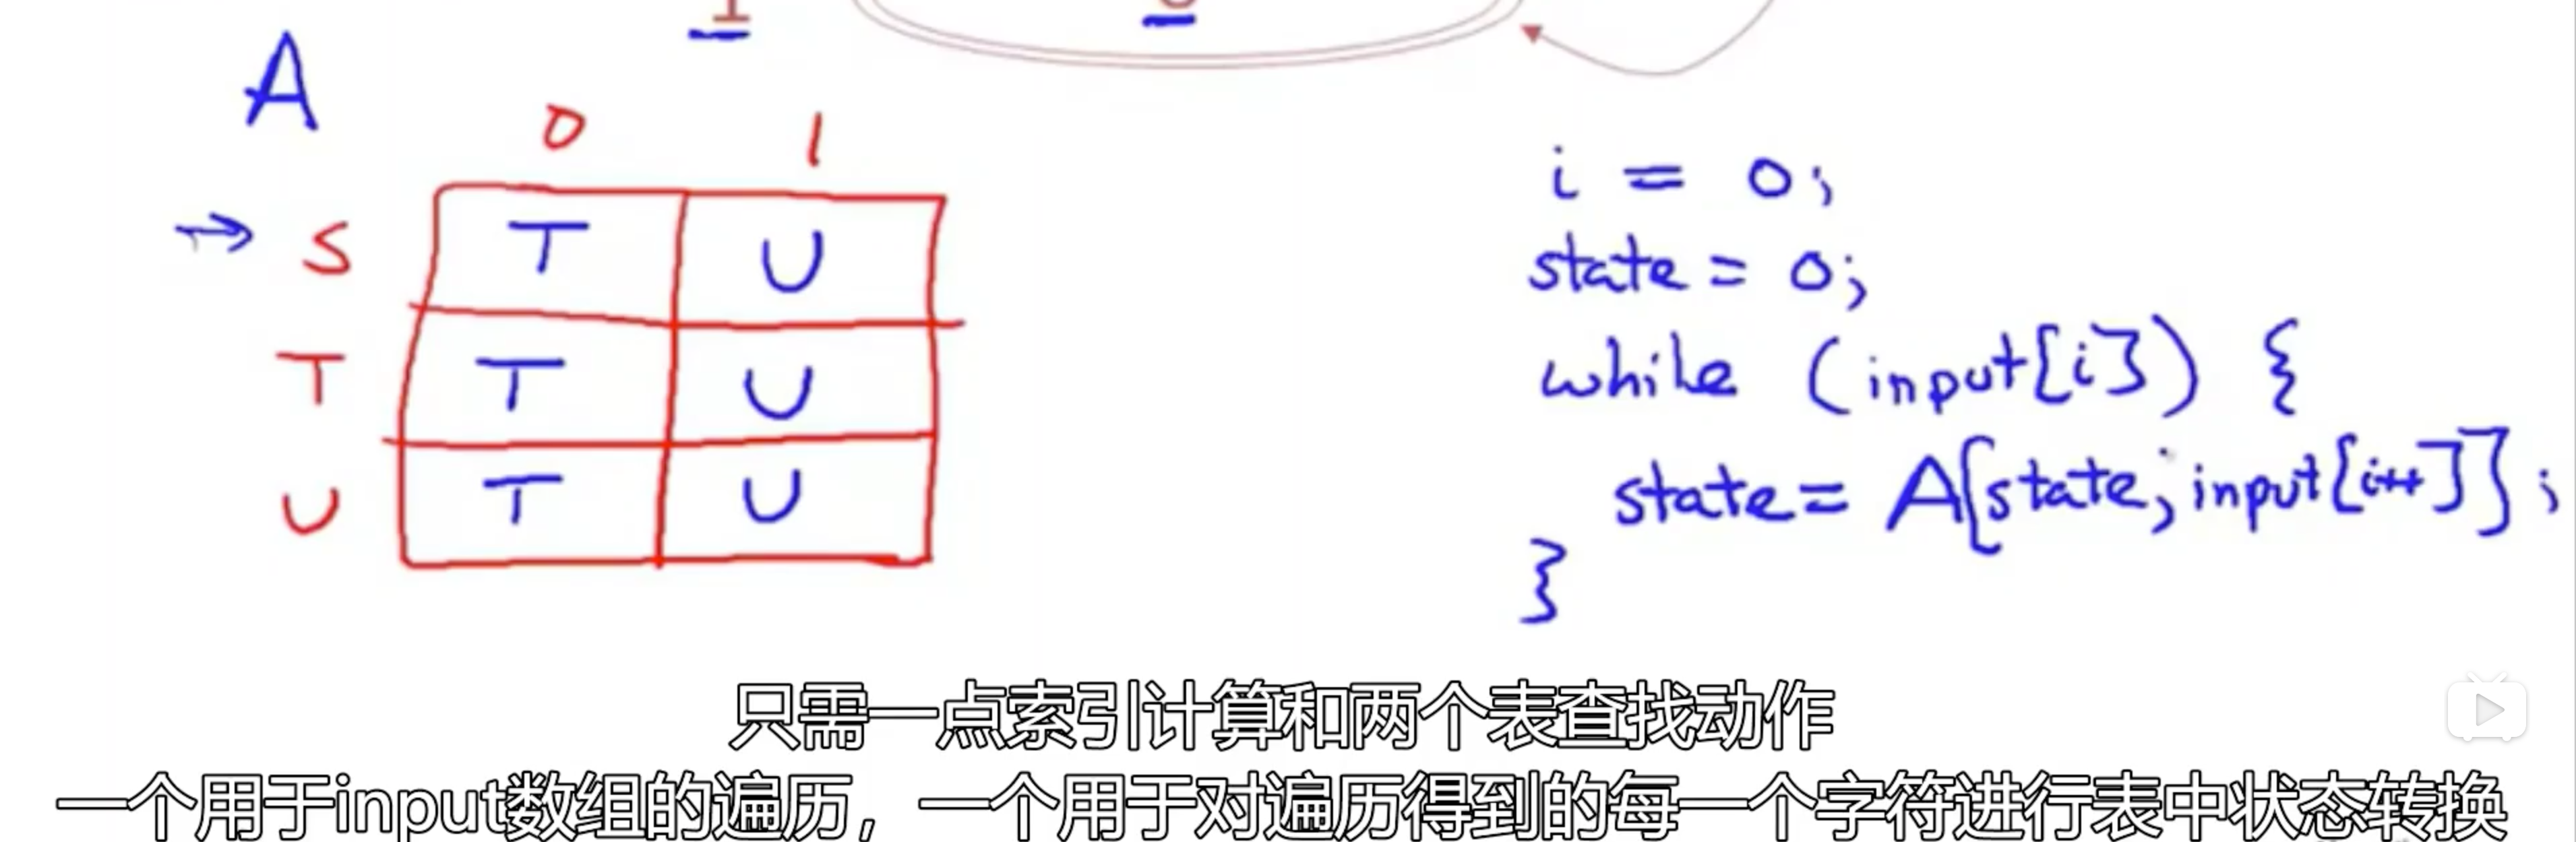 1
A
0 1
S T U
T T U
U T U
i = 0;
state = 0;
while (input[i]) {
state = A[state, input[i++]];
}
只需一点索引计算和两个表查找动作
一个用于input数组的遍历，一个用于对遍历得到的每一个字符进行表中状态转换